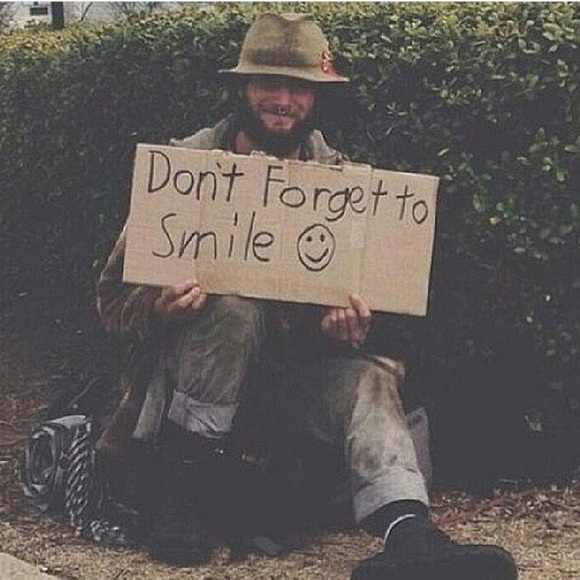 Don't Forget to
Smile ☺